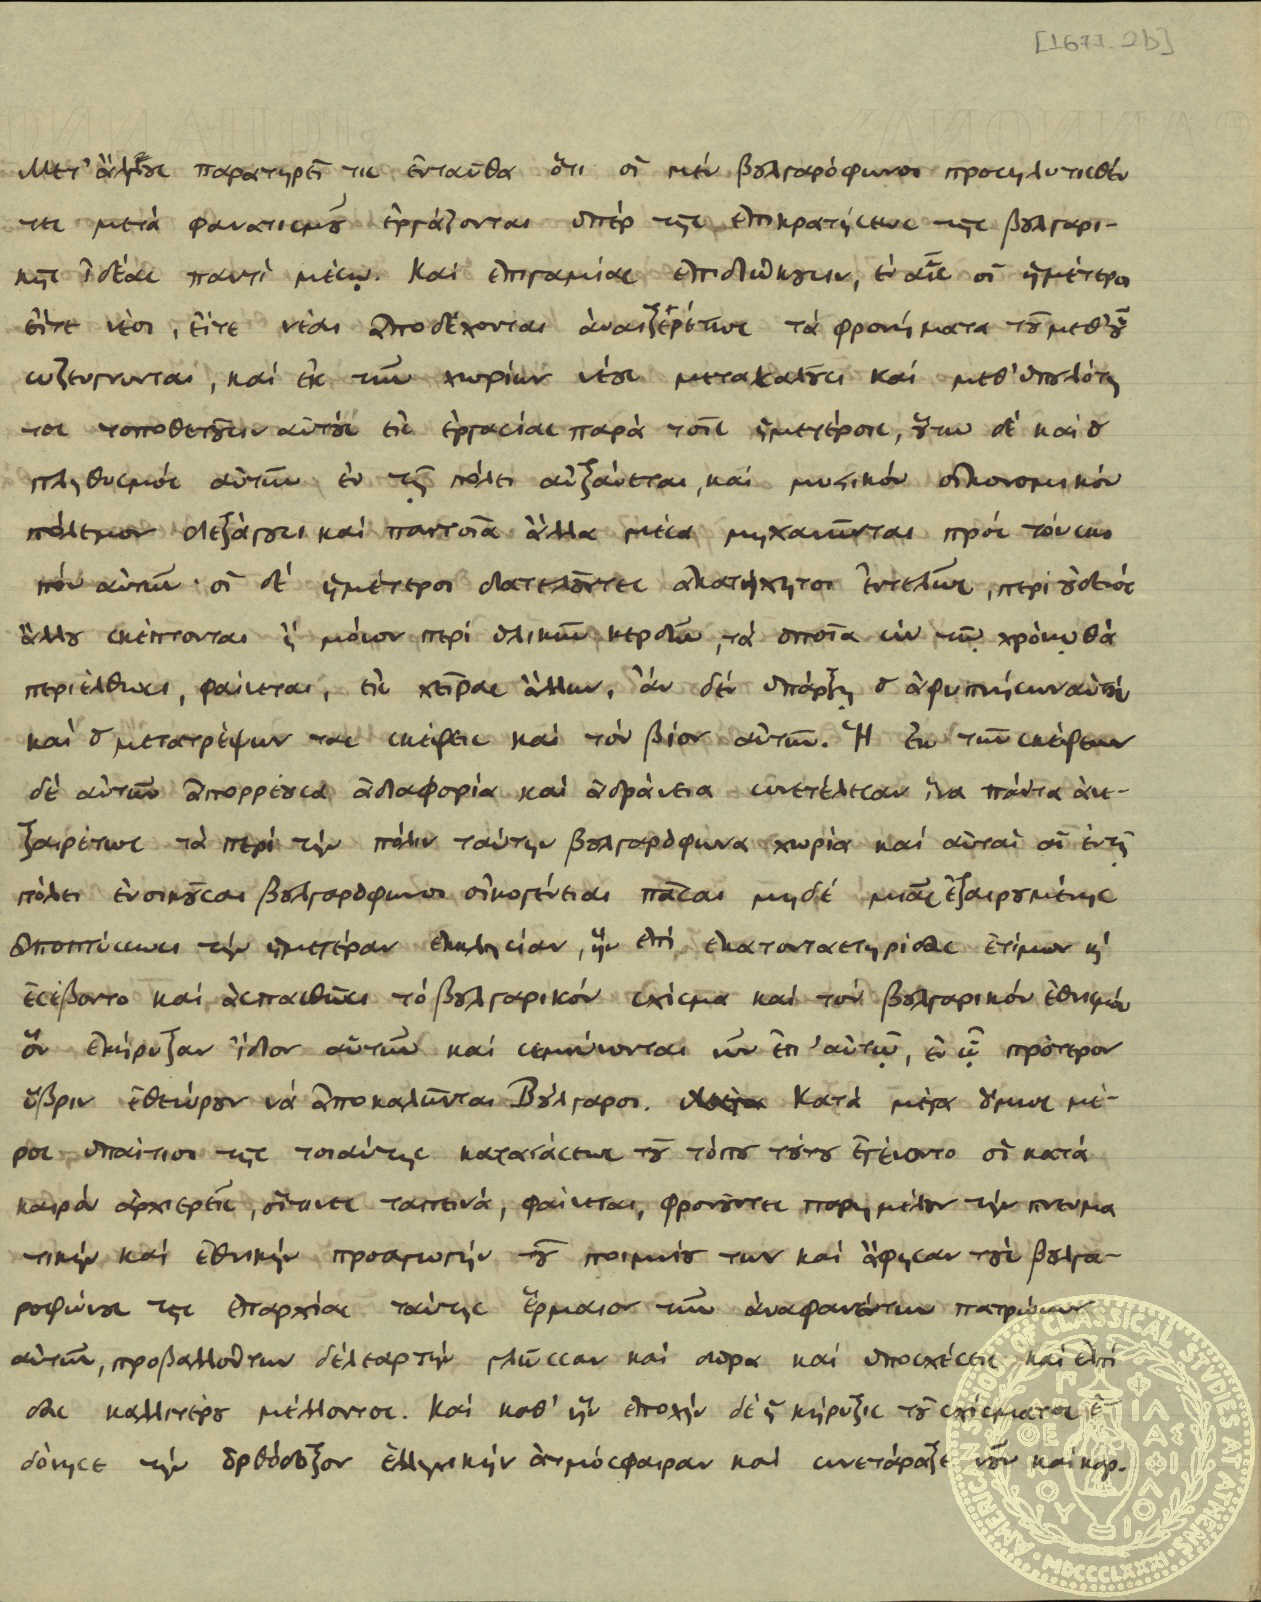 [1677. 2b]
Μετ' ἄλγους παρατηρεῖ τις ἐνταῦθα ὅτι οἱ μέν βουλγαρόφωνοι προσηλυτισθέν
τες μετά φανατισμοῦ ἐργάζονται ὑπέρ τῆς ἐπικρατήσεως τῆς βουλγαρι-
κῆς ἰδέας παντί μέσῳ. Καί ἐπιγαμίας ἐπιδιώκουσιν, ἐν αἷς οἱ ἡμέτεροι
εἴτε νέοι, εἴτε νέαι ἀποδέχονται ἀναιξερέτως τά φρονήματα τοῦ μεθ' οὗ
συζευγνυνται, καί ἐκ τῶν χωρίων νέους μετακαλοῦσι καί μεθ' ὑπουλότη
τος τοποθετοῦσιν αὐτούς εἰς ἐργασίας παρά τοῖς ἡμετέροις, οὕτω δέ καί ὁ
πληθυσμός αὐτῶν ἐν τῇ πόλει αὐξάνεται, καί μυστικόν οἰκονομικόν
πόλεμον διεξάγουσι καί παντοῖα ἄλλα μέσα μηχανῶνται πρός τόν σκο
πόν αὐτῶν· οἱ δέ ἡμέτεροι διατελοῦντες ἀκατήχητοι ἐντελῶς, περί οὐδενός
ἄλλου σκέπτονται ἤ μόνον περί ὑλικῶν κερδῶν, τά ὁποῖα σύν τῷ χρόνῳ θά
περιέλθωσι, φαίνεται, εἰς χεῖρας ἄλλων, ἄν δέν ὑπάρξῃ ὁ ἀφυπνήσων αὐτούς
καί ὁ μετατρέψων τας σκέψεις καί τόν βίον αὐτῶν. Ἡ ἐκ τῶν σκέψεων
δέ αὐτῶν ἀπορρέουσα ἀδιαφορία καί ἀδράνεια συνετέλεσαν ἵνα πάντα ἀνε-
ξαιρέτως τά περί τήν πόλιν ταύτην βουλγαρόφωνα χωρία καί αὐταί αἱ ἐν τῇ
πόλει ἐνοικοῦσαι βουλγαρόφωνοι οἰκογένειαι πᾶσαι μηδέ μιᾶς ἐξαιρουμένης
ἀποπτύσωσι τήν ἡμετέραν ἐκκλησίαν, ἥν ἐπί ἑκατονταετηρίδας ἐτίμων κ'
ἐσέβοντο καί ἀσπασθῶσι τό βουλγαρικόν σχίσμα καί τόν βουλγαρικόν ἐθνισμόν
ὅν ἐκήρυξαν ἴδιον αὐτῶν καί σεμνύνονται νῦν ἐπ' αὐτῷ, ἐν ᾧ πρότερον
ὕβριν ἐθεώρουν νά ἀποκαλῶνται Βούλγαροι. Κατά μέγα ὅμως μέ-
ρος ὑπαίτιοι τῆς τοιαύτης καταστάσεως τοῦ τόπου τούτου ἐγένοντο οἱ κατά
καιρόν ἀρχιερεῖς, οἵτινες ταπεινά, φαίνεται, φρονοῦντες παρημέλουν τήν πνευμα
τικήν καί ἐθνικήν προαγωγήν τοῦ ποιμνίου των καί ἄφησαν τούς βουλγα-
ροφώνους τῆς ἐπαρχίας ταύτης ἕρμαιον τῶν ἀναφανέντων πατρώνων
αὐτῶν, προβαλλόντων δέλεαρ τήν γλῶσσαν καί δῶρα καί ὑποσχέσεις καί ἐλπί
δας καλλιτέρου μέλλοντος. Καί καθ' ἥν ἐποχήν δέ ἡ κήρυξις τοῦ σχίσματος ἐ
δόνησε τήν ὀρθόδοξον ἑλληνικήν ἀτμόσφαιραν καί συνετάραξε νοῦν καί καρ-
AMERICAN SCHOOL OF CLASSICAL STUDIES AT ATHENS · MDCCCLXXXI ·